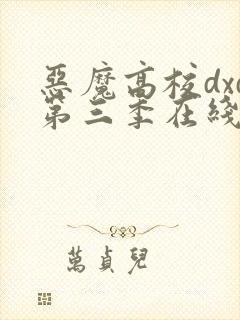 惡魔高校dxd
第三季在綫
萬貞兒